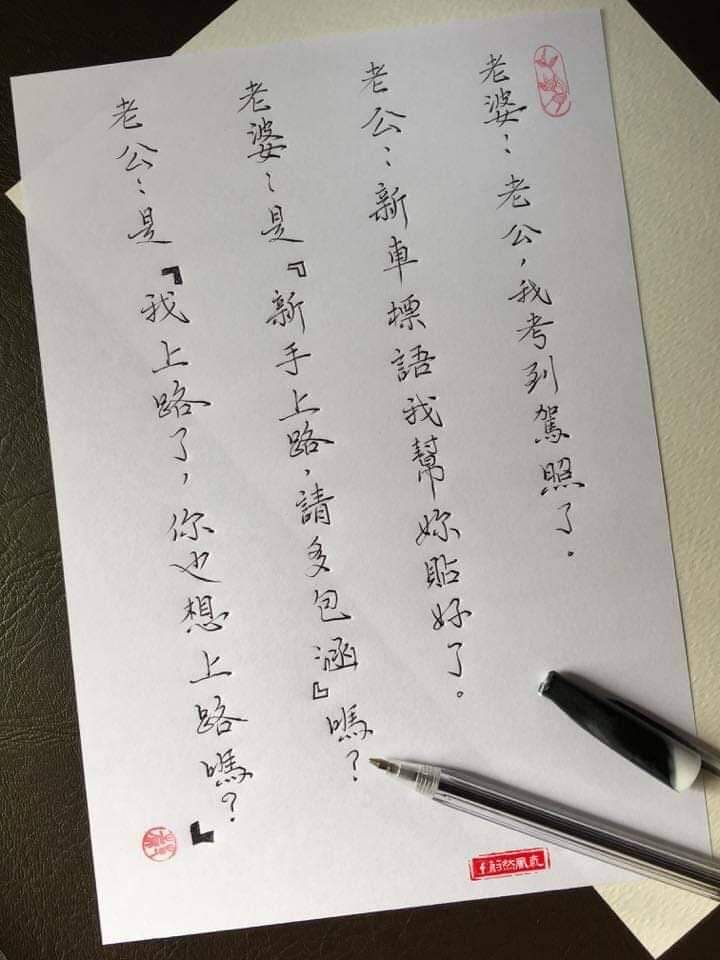 老婆：老公，我考到駕照了。
老公：新車標語我幫妳貼好了。
老婆：是『新手上路，請多包涵』嗎？
老公：是『我上路了，你也想上路嗎？』
蔚然風氣